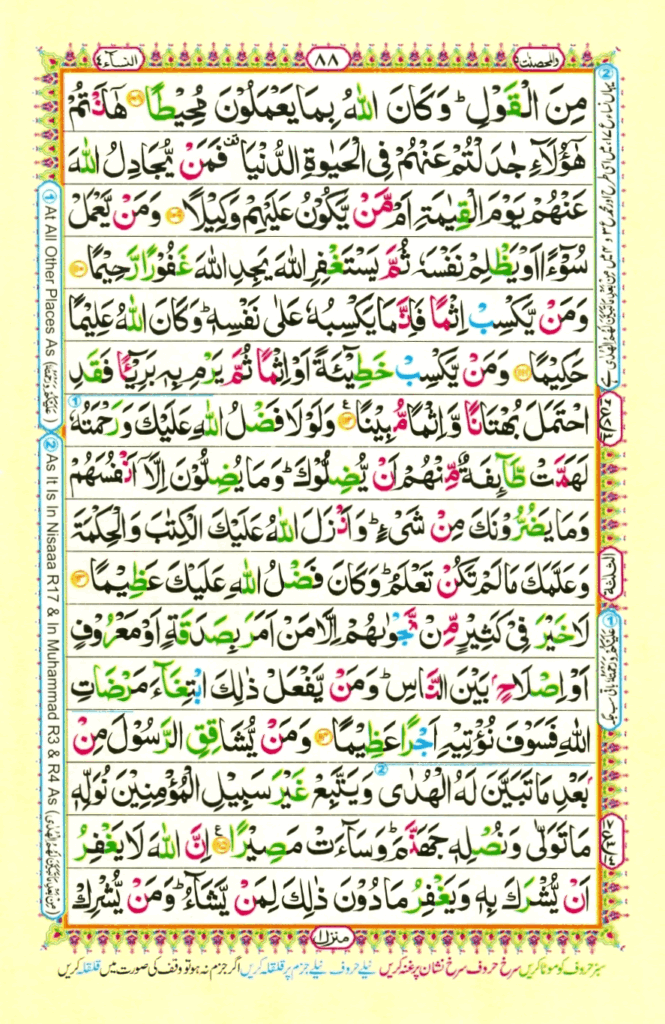 النسآء ٤
٨٨
والمحصنت ٥
مِنَ الْقَوْلِ ؕ وَكَانَ اللّٰهُ بِمَا يَعْمَلُوْنَ مُحِيْطًا ﴿۱۰۸﴾ هٰۤاَنْتُمْ
هٰٓؤُلَآءِ جٰدَلْتُمْ عَنْهُمْ فِی الْحَيٰوةِ الدُّنْيَا ۫ فَمَنْ يُّجَادِلُ اللّٰهَ
عَنْهُمْ يَوْمَ الْقِيٰمَةِ اَمْ مَّنْ يَّكُوْنُ عَلَيْهِمْ وَكِيْلًا ﴿۱۰۹﴾ وَمَنْ يَّعْمَلْ
سُوْٓءًا اَوْ يَظْلِمْ نَفْسَهٗ ثُمَّ يَسْتَغْفِرِ اللّٰهَ يَجِدِ اللّٰهَ غَفُوْرًا رَّحِيْمًا ﴿۱۱۰﴾
وَمَنْ يَّكْسِبْ اِثْمًا فَاِنَّمَا يَكْسِبُهٗ عَلٰی نَفْسِهٖ ؕ وَكَانَ اللّٰهُ عَلِيْمًا
حَكِيْمًا ﴿۱۱۱﴾ وَمَنْ يَّكْسِبْ خَطِيْٓئَةً اَوْ اِثْمًا ثُمَّ يَرْمِ بِهٖ بَرِيْٓئًا فَقَدِ
احْتَمَلَ بُهْتَانًا وَّاِثْمًا مُّبِيْنًا ﴿۱۱۲﴾ وَلَوْلَا فَضْلُ اللّٰهِ عَلَيْكَ وَرَحْمَتُهٗ
لَهَمَّتْ طَّآئِفَةٌ مِّنْهُمْ اَنْ يُّضِلُّوْكَ ؕ وَمَا يُضِلُّوْنَ اِلَّاۤ اَنْفُسَهُمْ
وَمَا يَضُرُّوْنَكَ مِنْ شَیْءٍ ؕ وَاَنْزَلَ اللّٰهُ عَلَيْكَ الْكِتٰبَ وَالْحِكْمَةَ
وَعَلَّمَكَ مَا لَمْ تَكُنْ تَعْلَمُ ؕ وَكَانَ فَضْلُ اللّٰهِ عَلَيْكَ عَظِيْمًا ﴿۱۱۳﴾
لَا خَيْرَ فِیْ كَثِيْرٍ مِّنْ نَّجْوٰىهُمْ اِلَّا مَنْ اَمَرَ بِصَدَقَةٍ اَوْ مَعْرُوْفٍ
اَوْ اِصْلَاحٍۭ بَيْنَ النَّاسِ ؕ وَمَنْ يَّفْعَلْ ذٰلِكَ ابْتِغَآءَ مَرْضَاتِ
اللّٰهِ فَسَوْفَ نُؤْتِيْهِ اَجْرًا عَظِيْمًا ﴿۱۱۴﴾ وَمَنْ يُّشَاقِقِ الرَّسُوْلَ مِنْۢ
بَعْدِ مَا تَبَيَّنَ لَهُ الْهُدٰی وَيَتَّبِعْ غَيْرَ سَبِيْلِ الْمُؤْمِنِيْنَ نُوَلِّهٖ
مَا تَوَلّٰی وَنُصْلِهٖ جَهَنَّمَ ؕ وَسَآءَتْ مَصِيْرًا ﴿۱۱۵﴾ اِنَّ اللّٰهَ لَا يَغْفِرُ
اَنْ يُّشْرَكَ بِهٖ وَيَغْفِرُ مَا دُوْنَ ذٰلِكَ لِمَنْ يَّشَآءُ ؕ وَمَنْ يُّشْرِكْ
① At All Other Places As (عَلَيْكُمْ وَرَحْمَتُهٗ)
② As It Is In Nisaaa R17 & In Muhammad R3 & R4 As (مِنْۢ بَعْدِ مَا تَبَيَّنَ لَهُمُ الْهُدٰی)
الثلثة
منزل ١
سبز حروف کو موٹا کریں سرخ حروف سرخ نشان پر غنہ کریں نیلے حروف نیلے جزم پر قلقلہ کریں اگر جزم نہ ہو تو وقف کی صورت میں قلقلہ کریں